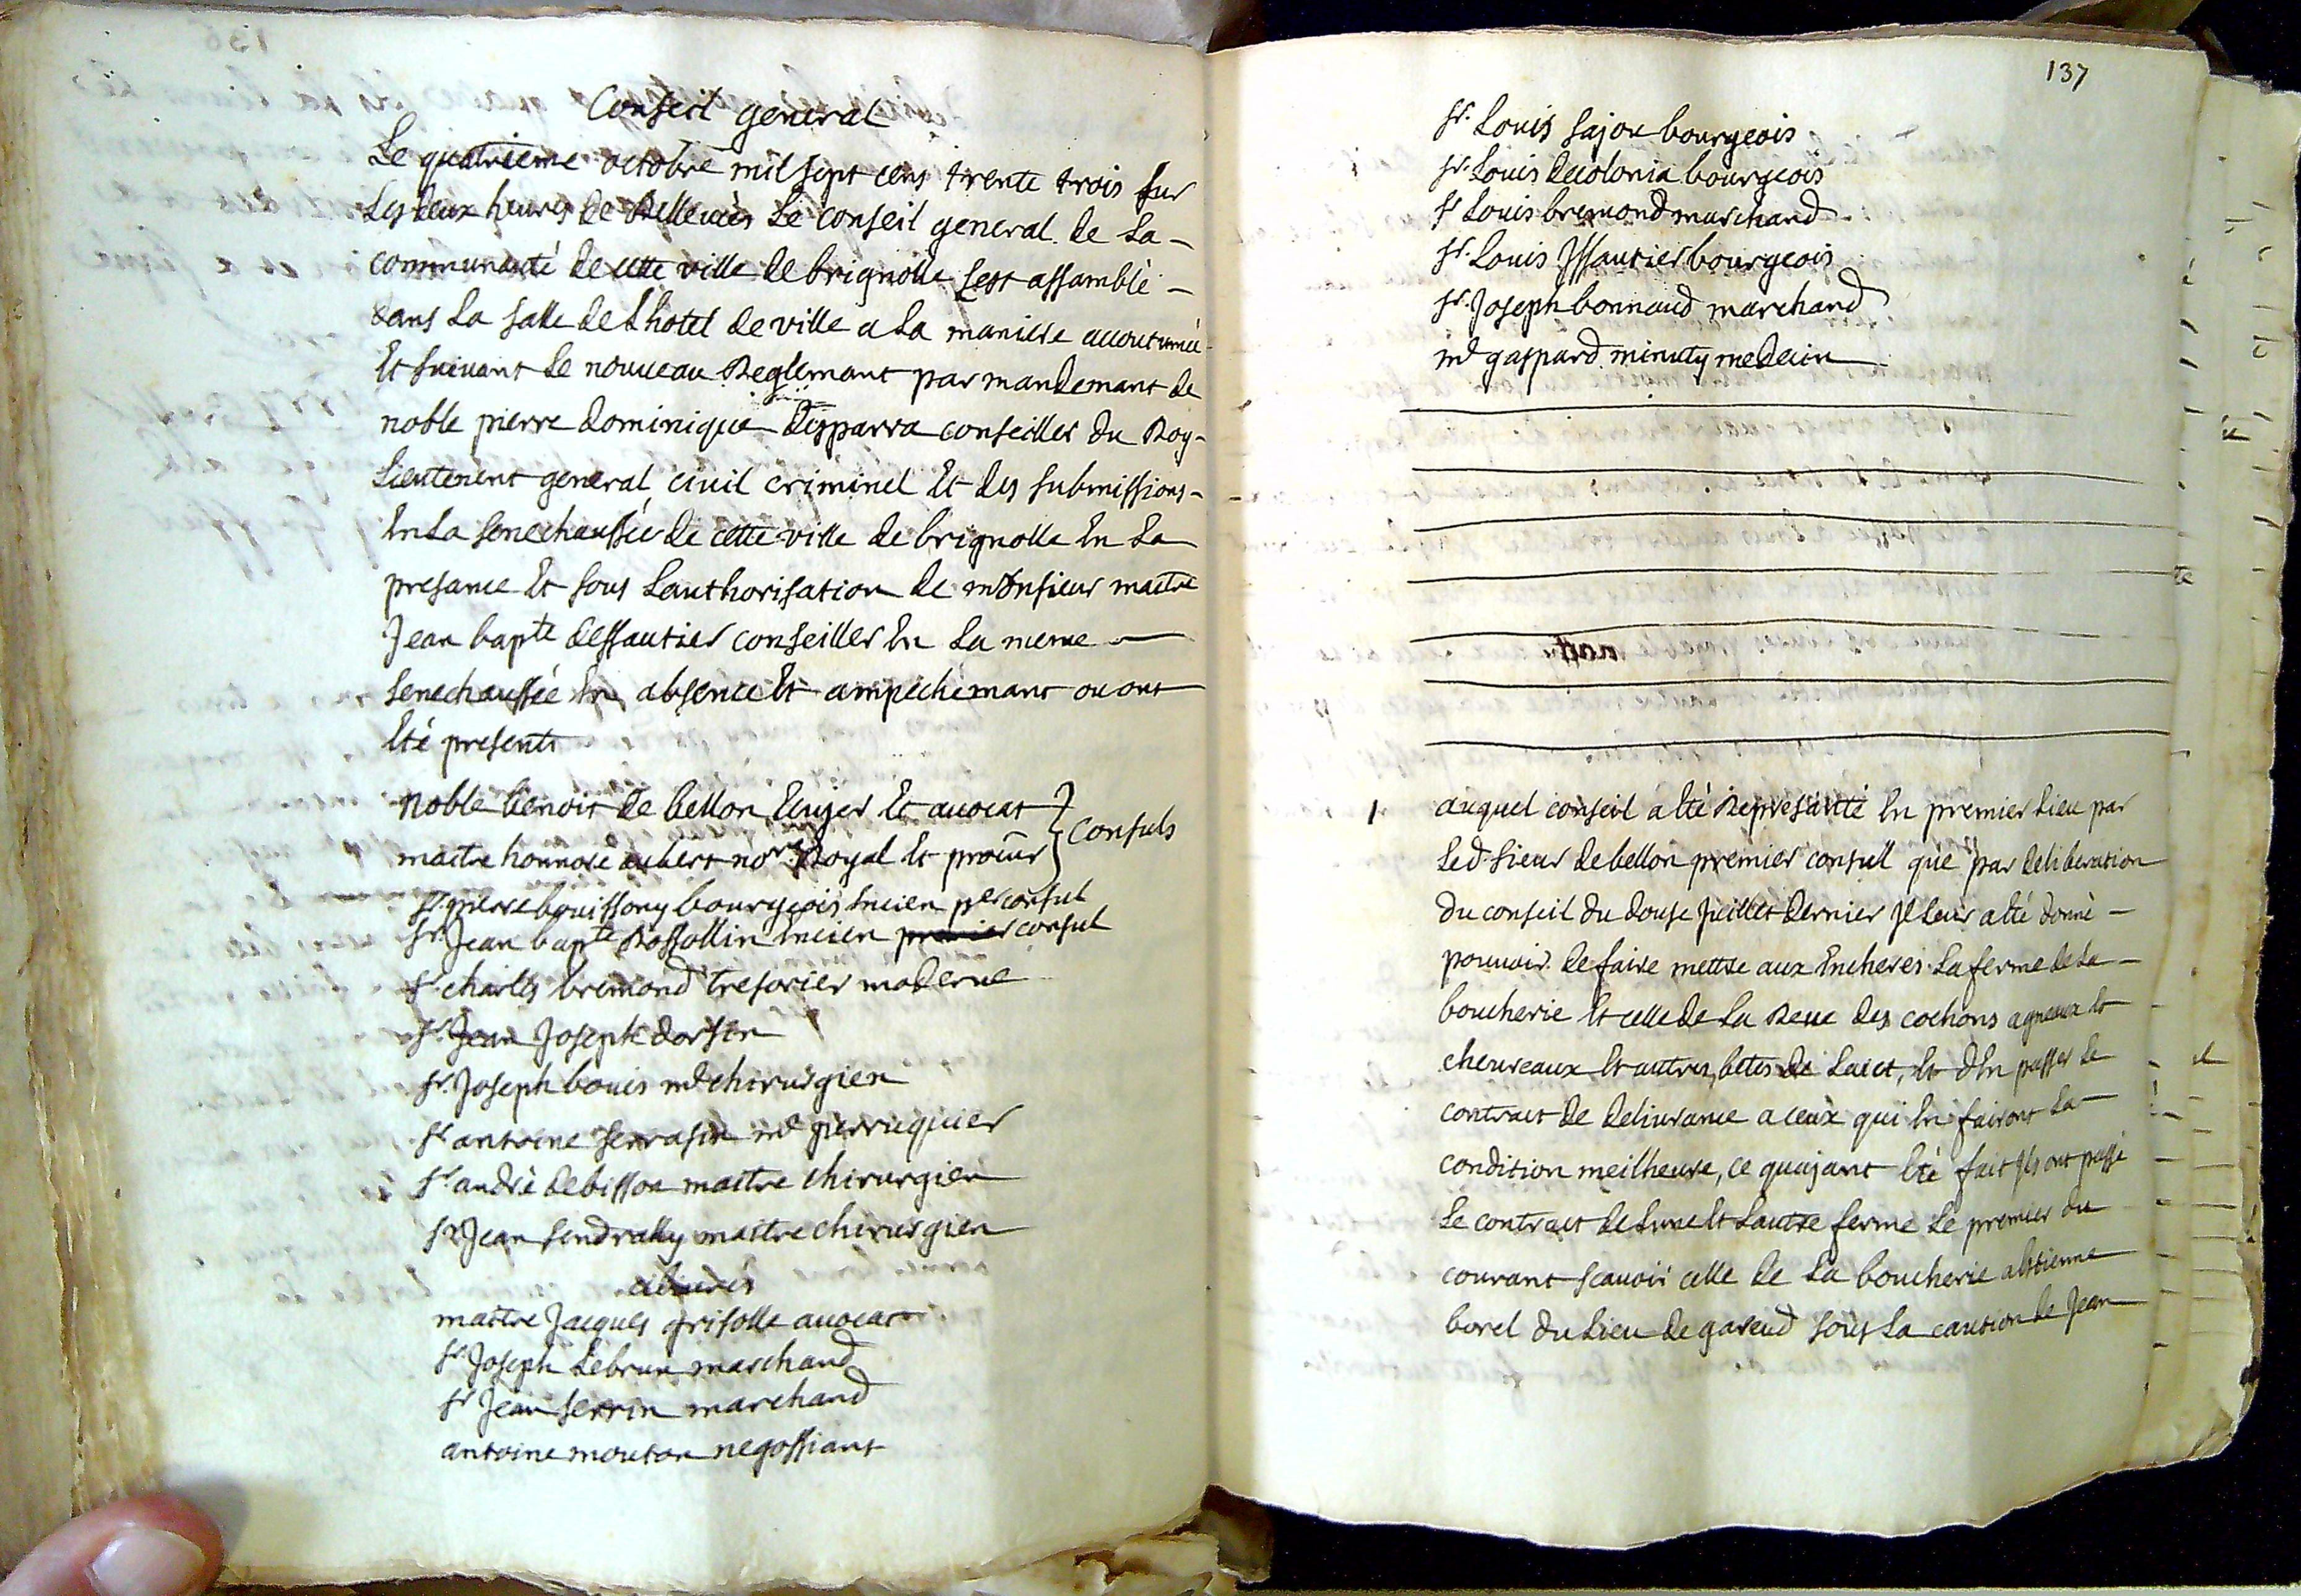 Conseil general
Le quatrieme octobre mil sept cens trente trois sur
Les deux heures de Rellevèes Le conseil general de La -
communauté de cette ville de brignolle sest assamblè -
dans La salle de Lhotel de ville a La maniere accoutumèe
Et suivant Le nouveau Reglemant par mandemant de
noble pierre dominique desparra conseiller du Roy -
Lieutenent general civil criminel Et des submissions -
En La senechaussée de cette ville de brignolle En La
presance Et sous Lauthorisation de monsieur maitre
Jean bapte dessautier conseiller En La meme
senechaussée En absence Et ampechemant ou ont
Eté presents
noble benoit de bellon Ecujer Et avocat
maitre honnoré aubert nore Royal Et procur } Consuls
sr. pierre bouissony bourgeois Encien per consul
sr. Jean bapte Rossollin Encien premier consul
sr charles bremond tresorier moderne
sr. Jean Joseph dorsin
sr. Joseph bouis me chirurgien
sr antoine serrasin me perruquier
sr andrè debisson maitre chirurgien
sr Jean sendrally maitre chirurgien
maitre Jacques grisolle avocat
sr. Joseph Lebrun marchand
sr Jean serrin marchand
antoine mouton negossiant
137
sr. Louis sajou bourgeois
sr. Louis decolonia bourgeois
sr Louis bremond marchand
sr. Louis Jssautier bourgeois
sr. Joseph bonnaud marchand
me gaspard minuty medecin
1 auquel conseil a Eté Represanté En premier Lieu par
Led. sieur de bellon premier consul que par deliberation
du conseil du douse Juillet dernier Jl leur a Eté donnè -
pouvoir de faire mettre aux Encheres La ferme de La -
boucherie Et celle de La Reve des cochons agneaux Et
chevreaux Et autres betes de Laict, Et dEn passer Le
contract de delivrance a ceux qui En fairont La -
condition meilheure, ce quajant Eté fait Jls ont passé
Le contract de Lune Et Lautre ferme Le premier du
courant scavoir celle de La boucherie a Estienne
borel du Lieu de gareud sous La caution de Jean